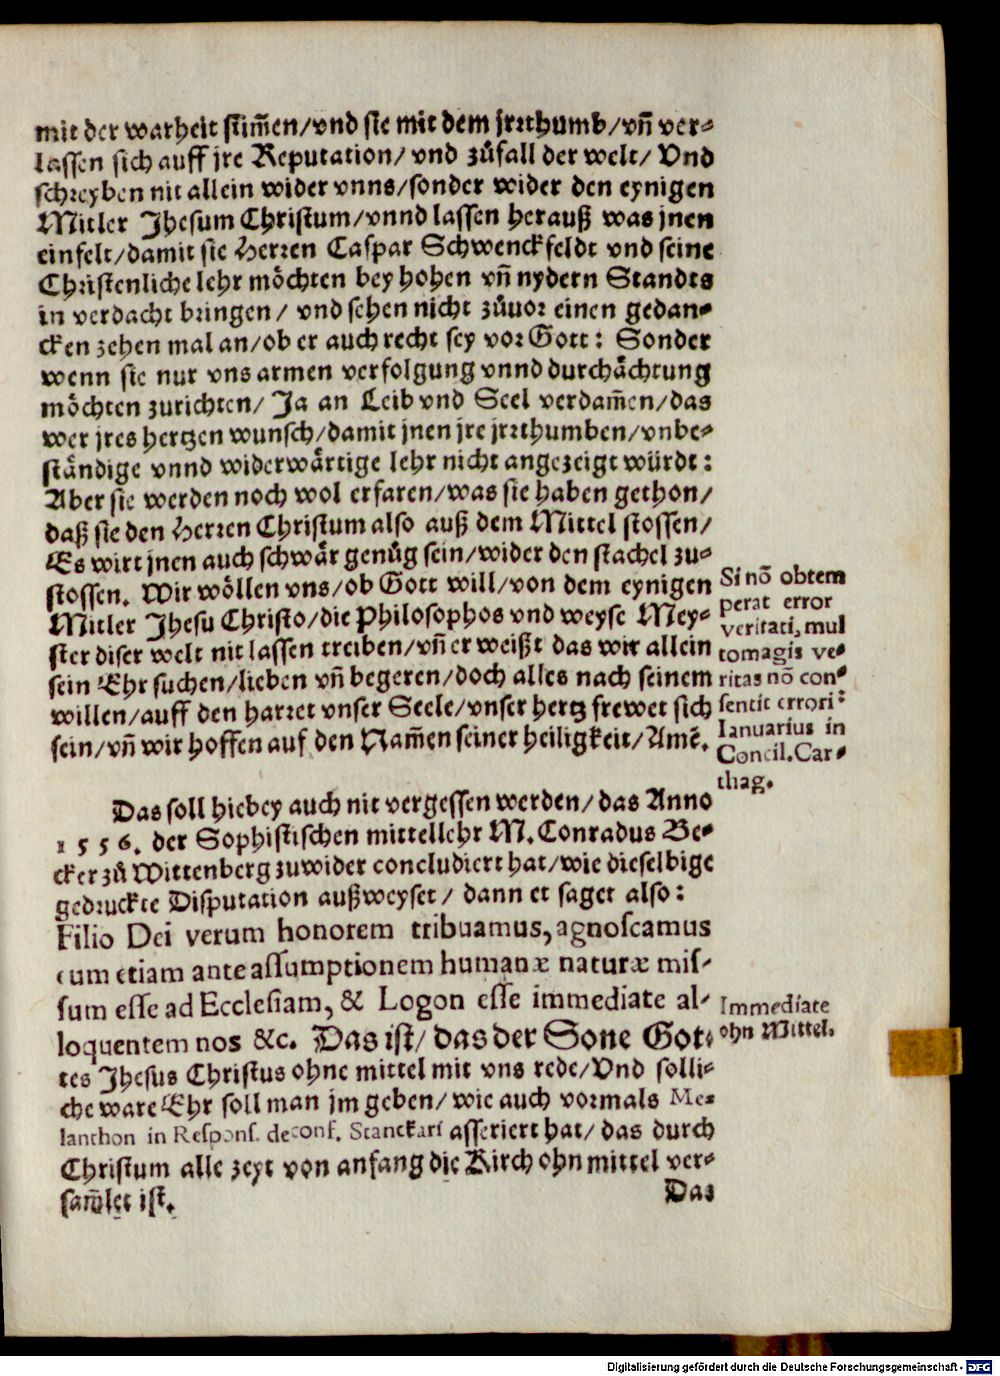 mit der warheit stim̃en/vnd sie mit dem jrrthumb/vñ ver⸗
lassen sich auff jre Reputation/ vnd zůfall der welt/ Vnd
schreyben nit allein wider vnns/sonder wider den eynigen
Mitler Jhesum Christum/vnnd lassen herauß was jnen
einfelt/damit sie Herren Caspar Schwenckfeldt vnd seine
Christenliche lehr möchten bey hohen vñ nydern Standts
in verdacht bringen/ vnd sehen nicht zůuor einen gedan⸗
cken zehen mal an/ob er auch recht sey vor Gott: Sonder
wenn sie nur vns armen verfolgung vnnd durchächtung
möchten zurichten/ Ja an Leib vnd Seel verdam̃en/das
wer jres hertzen wunsch/damit jnen jre jrrthumben/vnbe⸗
ständige vnnd widerwärtige lehr nicht angezeigt würdt:
Aber sie werden noch wol erfaren/was sie haben gethon/
daß sie den Herren Christum also auß dem Mittel stossen/
Es wirt jnen auch schwär genůg sein/wider den stachel zu⸗
stossen. Wir wöllen vns/ob Gott will/von dem eynigen
Mitler Jhesu Christo/die Philosophos vnd weyse Mey⸗
ster diser welt nit lassen treiben/vñ er weißt das wir allein
sein Ehr suchen/lieben vñ begeren/doch alles nach seinem
willen/auff den harret vnser Seele/vnser hertz frewet sich
sein/vñ wir hoffen auf den Nam̃en seiner heiligkeit/Amẽ.
Si nõ obtem
perat error
veritati, mul
tomagis ve⸗
ritas nõ con⸗
sentit errori:
Ianuarius in
Concil. Car⸗
thag.
Das soll hiebey auch nit vergessen werden/das Anno
1556. der Sophistischen mittellehr M. Conradus Be⸗
cker zů Wittenberg zuwider concludiert hat/wie dieselbige
gedruckte Disputation außweyset/ dann er saget also:
Filio Dei verum honorem tribuamus, agnoscamus
eum etiam ante assumptionem humanæ naturæ mis-
sum esse ad Ecclesiam, & Logon esse immediate al-
loquentem nos &c. Das ist/ das der Sone Got⸗
tes Jhesus Christus ohne mittel mit vns rede/Vnd solli⸗
che ware Ehr soll man jm geben/ wie auch vormals Me⸗
lanthon in Respons. de conf. Stanckari asseriert hat/ das durch
Christum alle zeyt von anfang die Kirch ohn mittel ver⸗
sam̃let ist.
Immediate
ohn Mittel.
Das
Digitalisierung gefördert durch die Deutsche Forschungsgemeinschaft - DFG